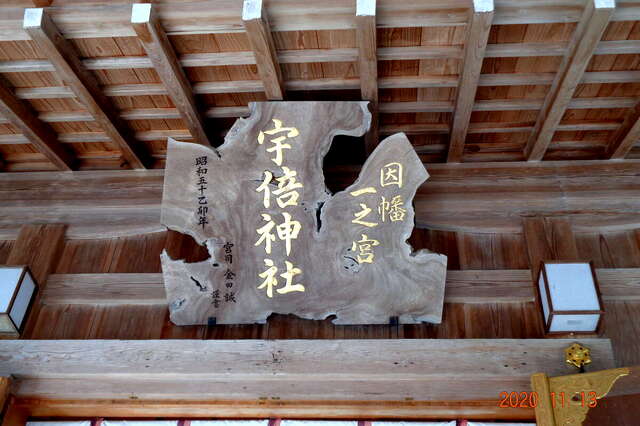 因幡
一之宮
宇倍神社
昭和五十乙卯年
宮司 金田誠
謹書
2020 11 13